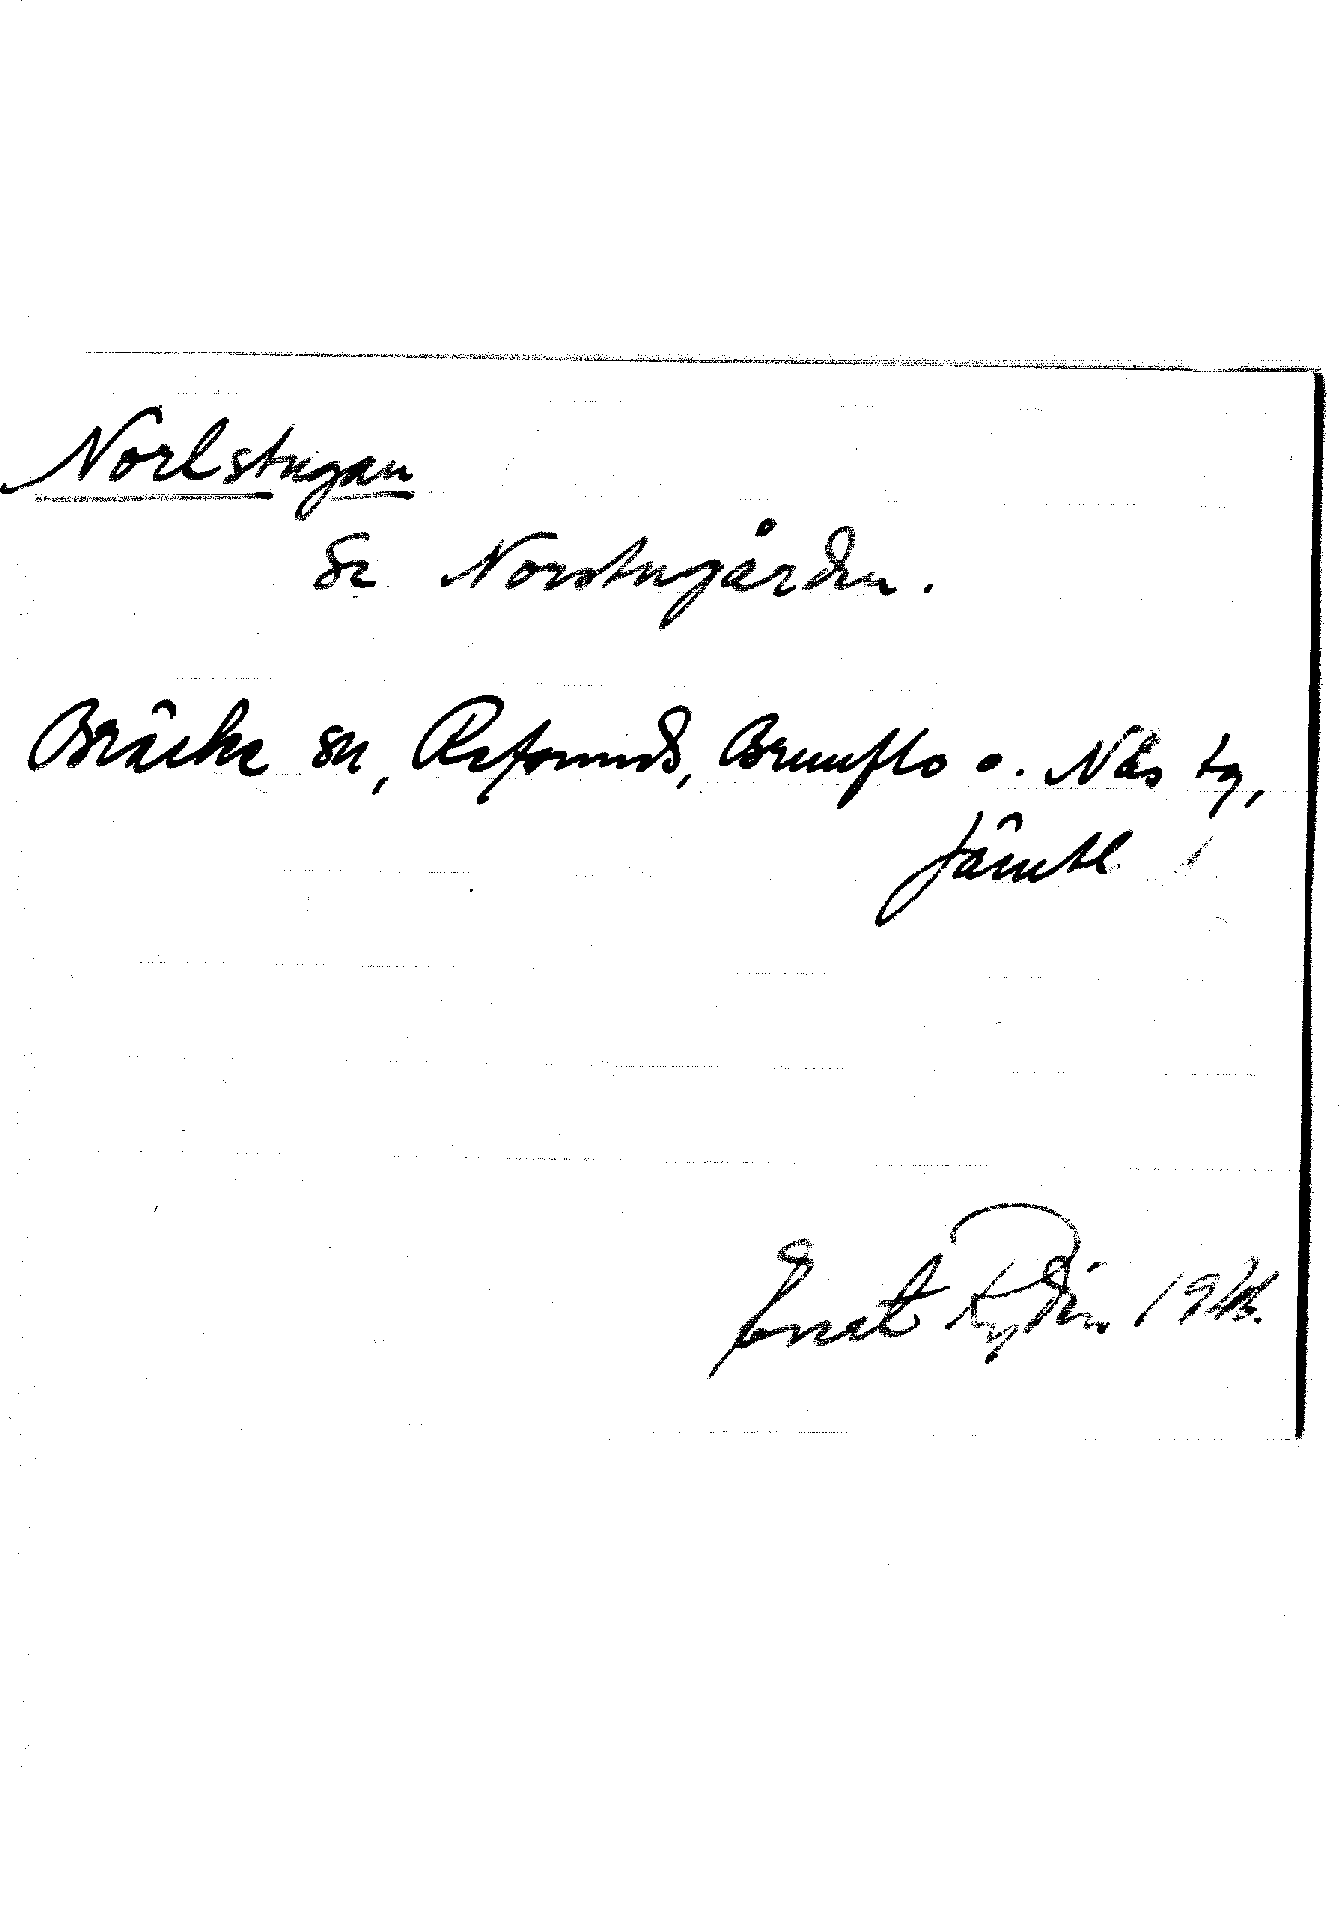 Norlstugan
Se Norstugården.
Bräcke sn, Refsunds, Brunflo o. Näs tg,
Jämtl
Ernst Rydin